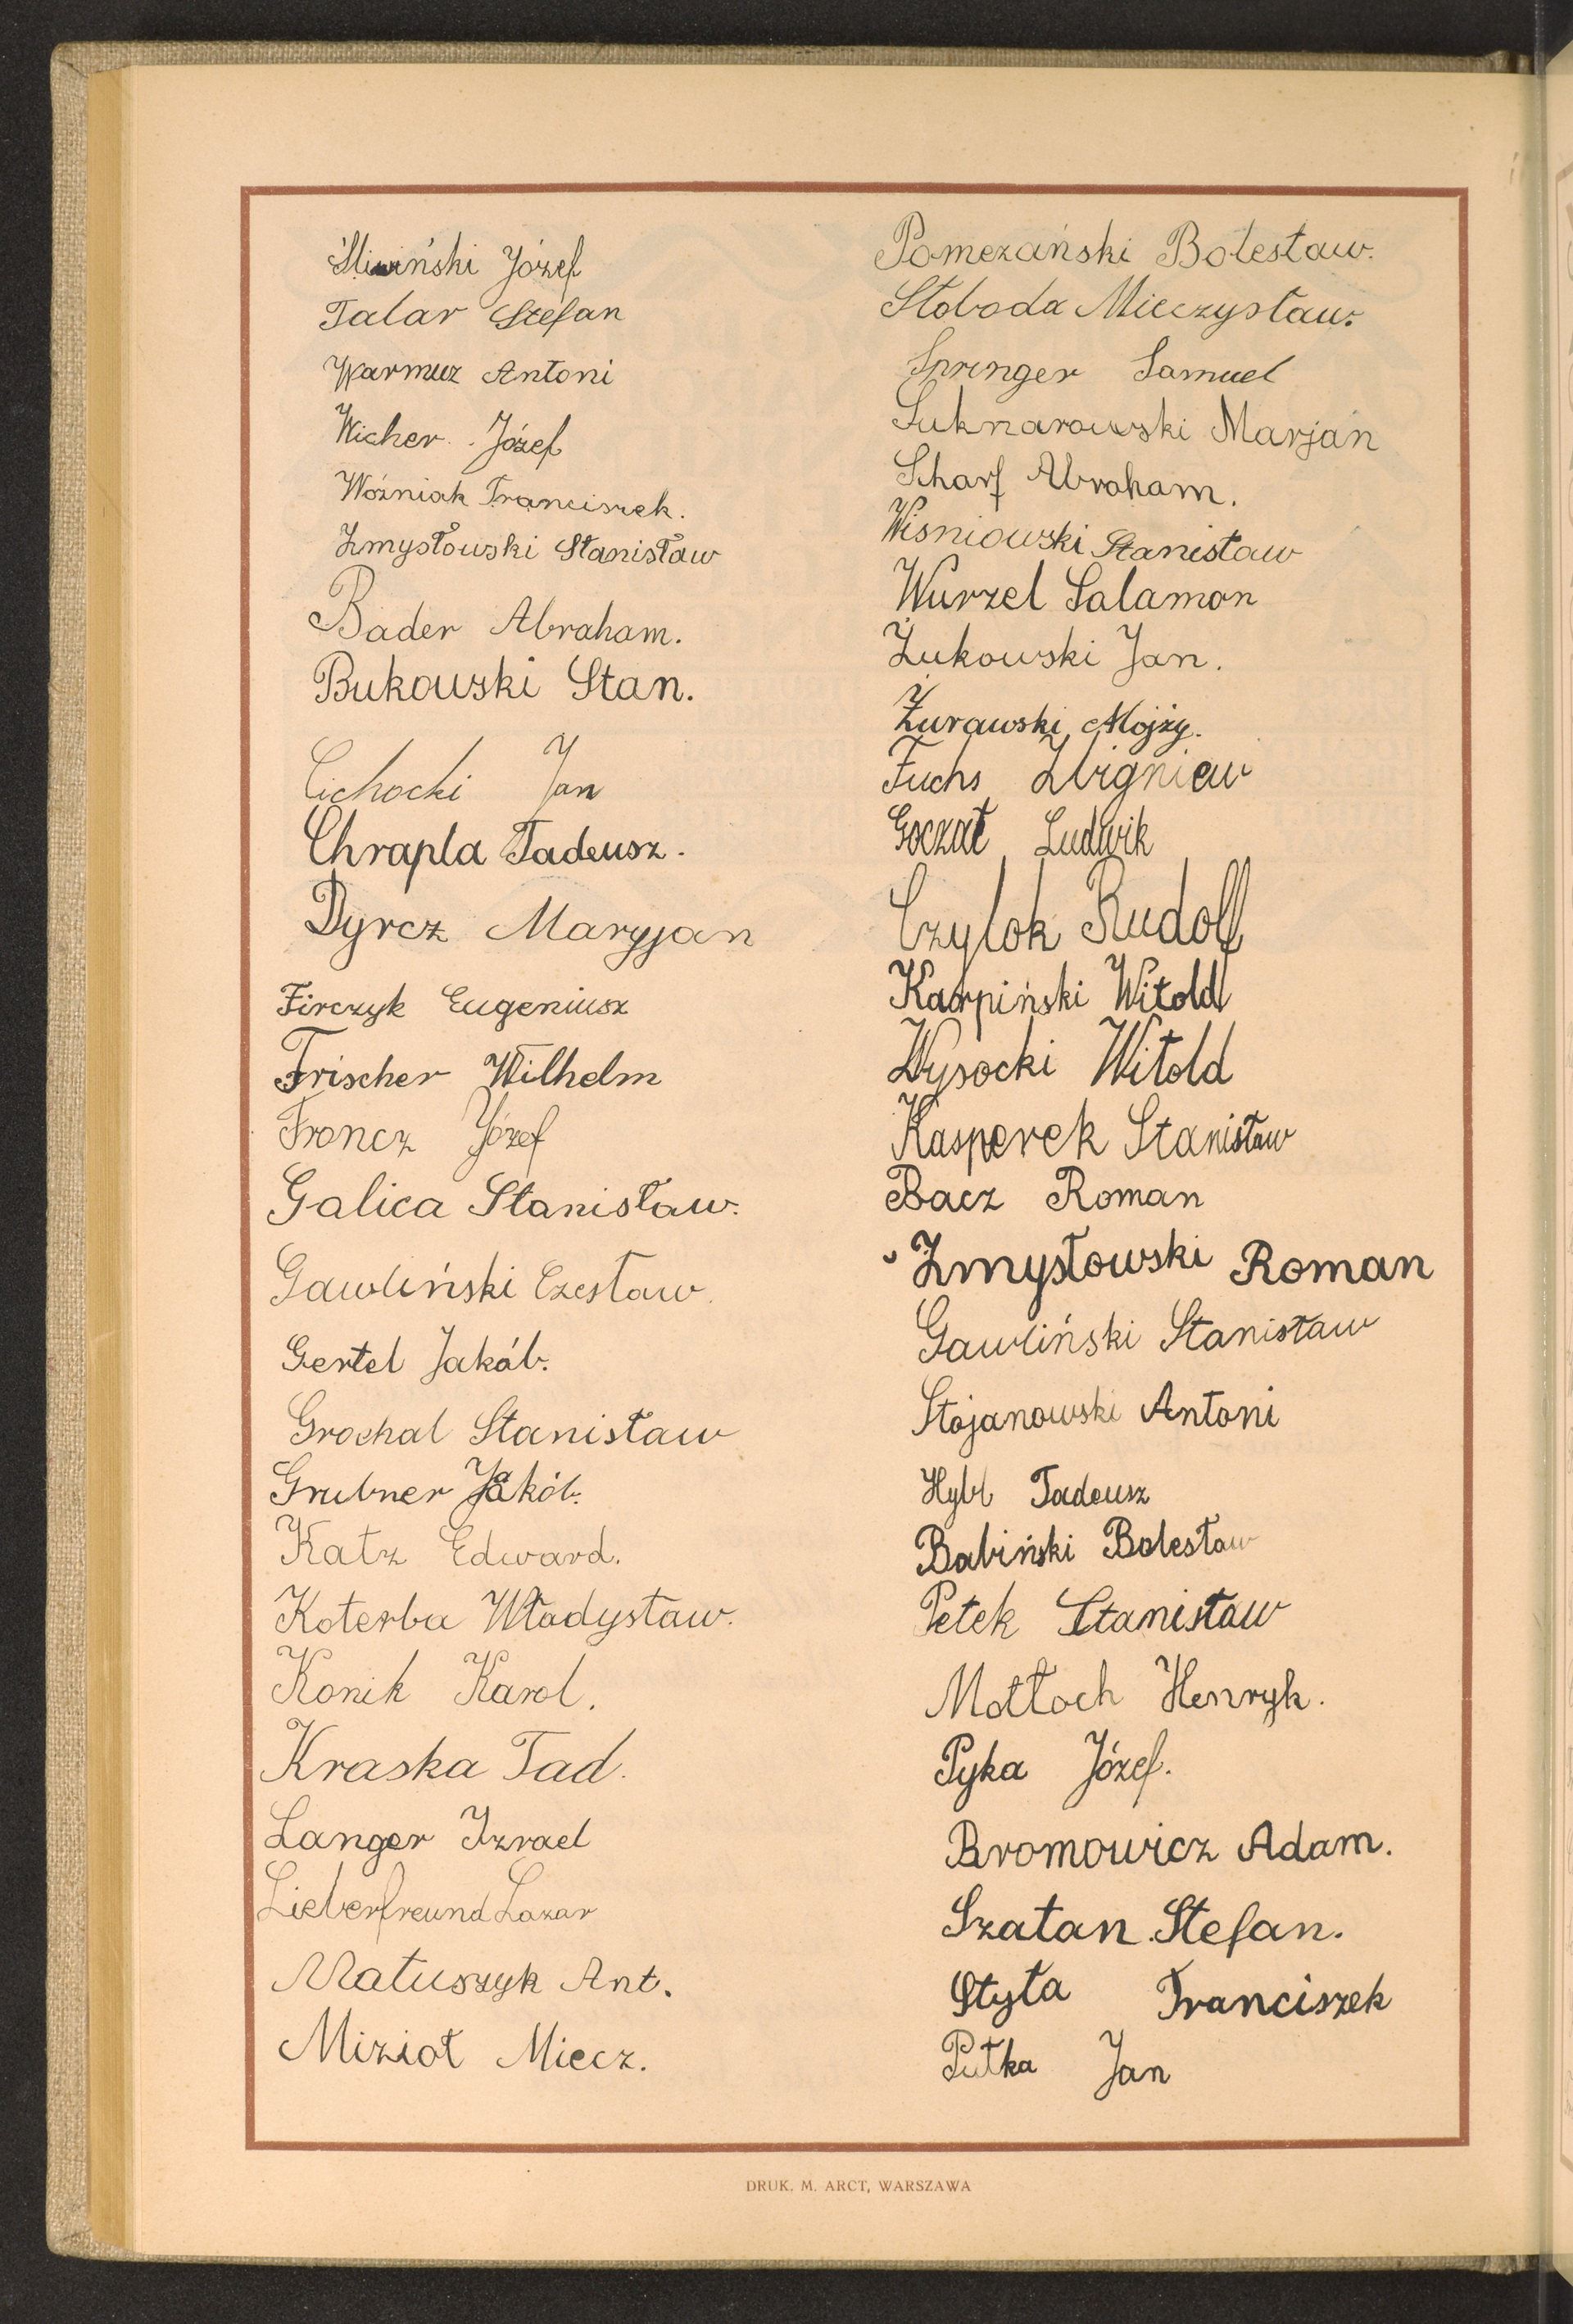 Śliwiński Józef
Talar Stefan
Warmuz Antoni
Wicher Józef
Woźniak Franciszek.
Zmysłowski Stanisław
Bader Abraham.
Bukowski Stan.
Cichocki Jan
Chrapla Tadeusz.
Dyrcz Maryjan
Firczyk Eugeniusz
Frischer Wilhelm
Froncz Józef
Galica Stanisław.
Gawliński Czesław.
Gertel Jakób.
Grochal Stanisław
Grubner Jakób.
Katz Edward.
Koterba Władysław.
Konik Karol.
Kraska Tad.
Langer Izrael
Lieberfreund Lazar
Matuszyk Ant.
Mizioł Miecz.
Pomezański Bolesław.
Słoboda Mieczysław.
Springer Samuel
Suknarowski Marjan
Scharf Abraham.
Wisniowski Stanisław
Wurzel Salamon
Żukowski Jan.
Żurawski Mojży.
Fuchs Zbigniew
Goczał Ludwik
Czylok Rudolf
Karpiński Witold
Wysocki Witold
Kasperek Stanisław
Bacz Roman
Zmysłowski Roman
Gawliński Stanisław
Stojanowski Antoni
Hybl Tadeusz
Babiński Bolesław
Petek Stanisław
Motłoch Henryk.
Pyka Józef.
Bromowicz Adam.
Szatan Stefan.
Styła Franciszek
Putka Jan
DRUK. M. ARCT, WARSZAWA